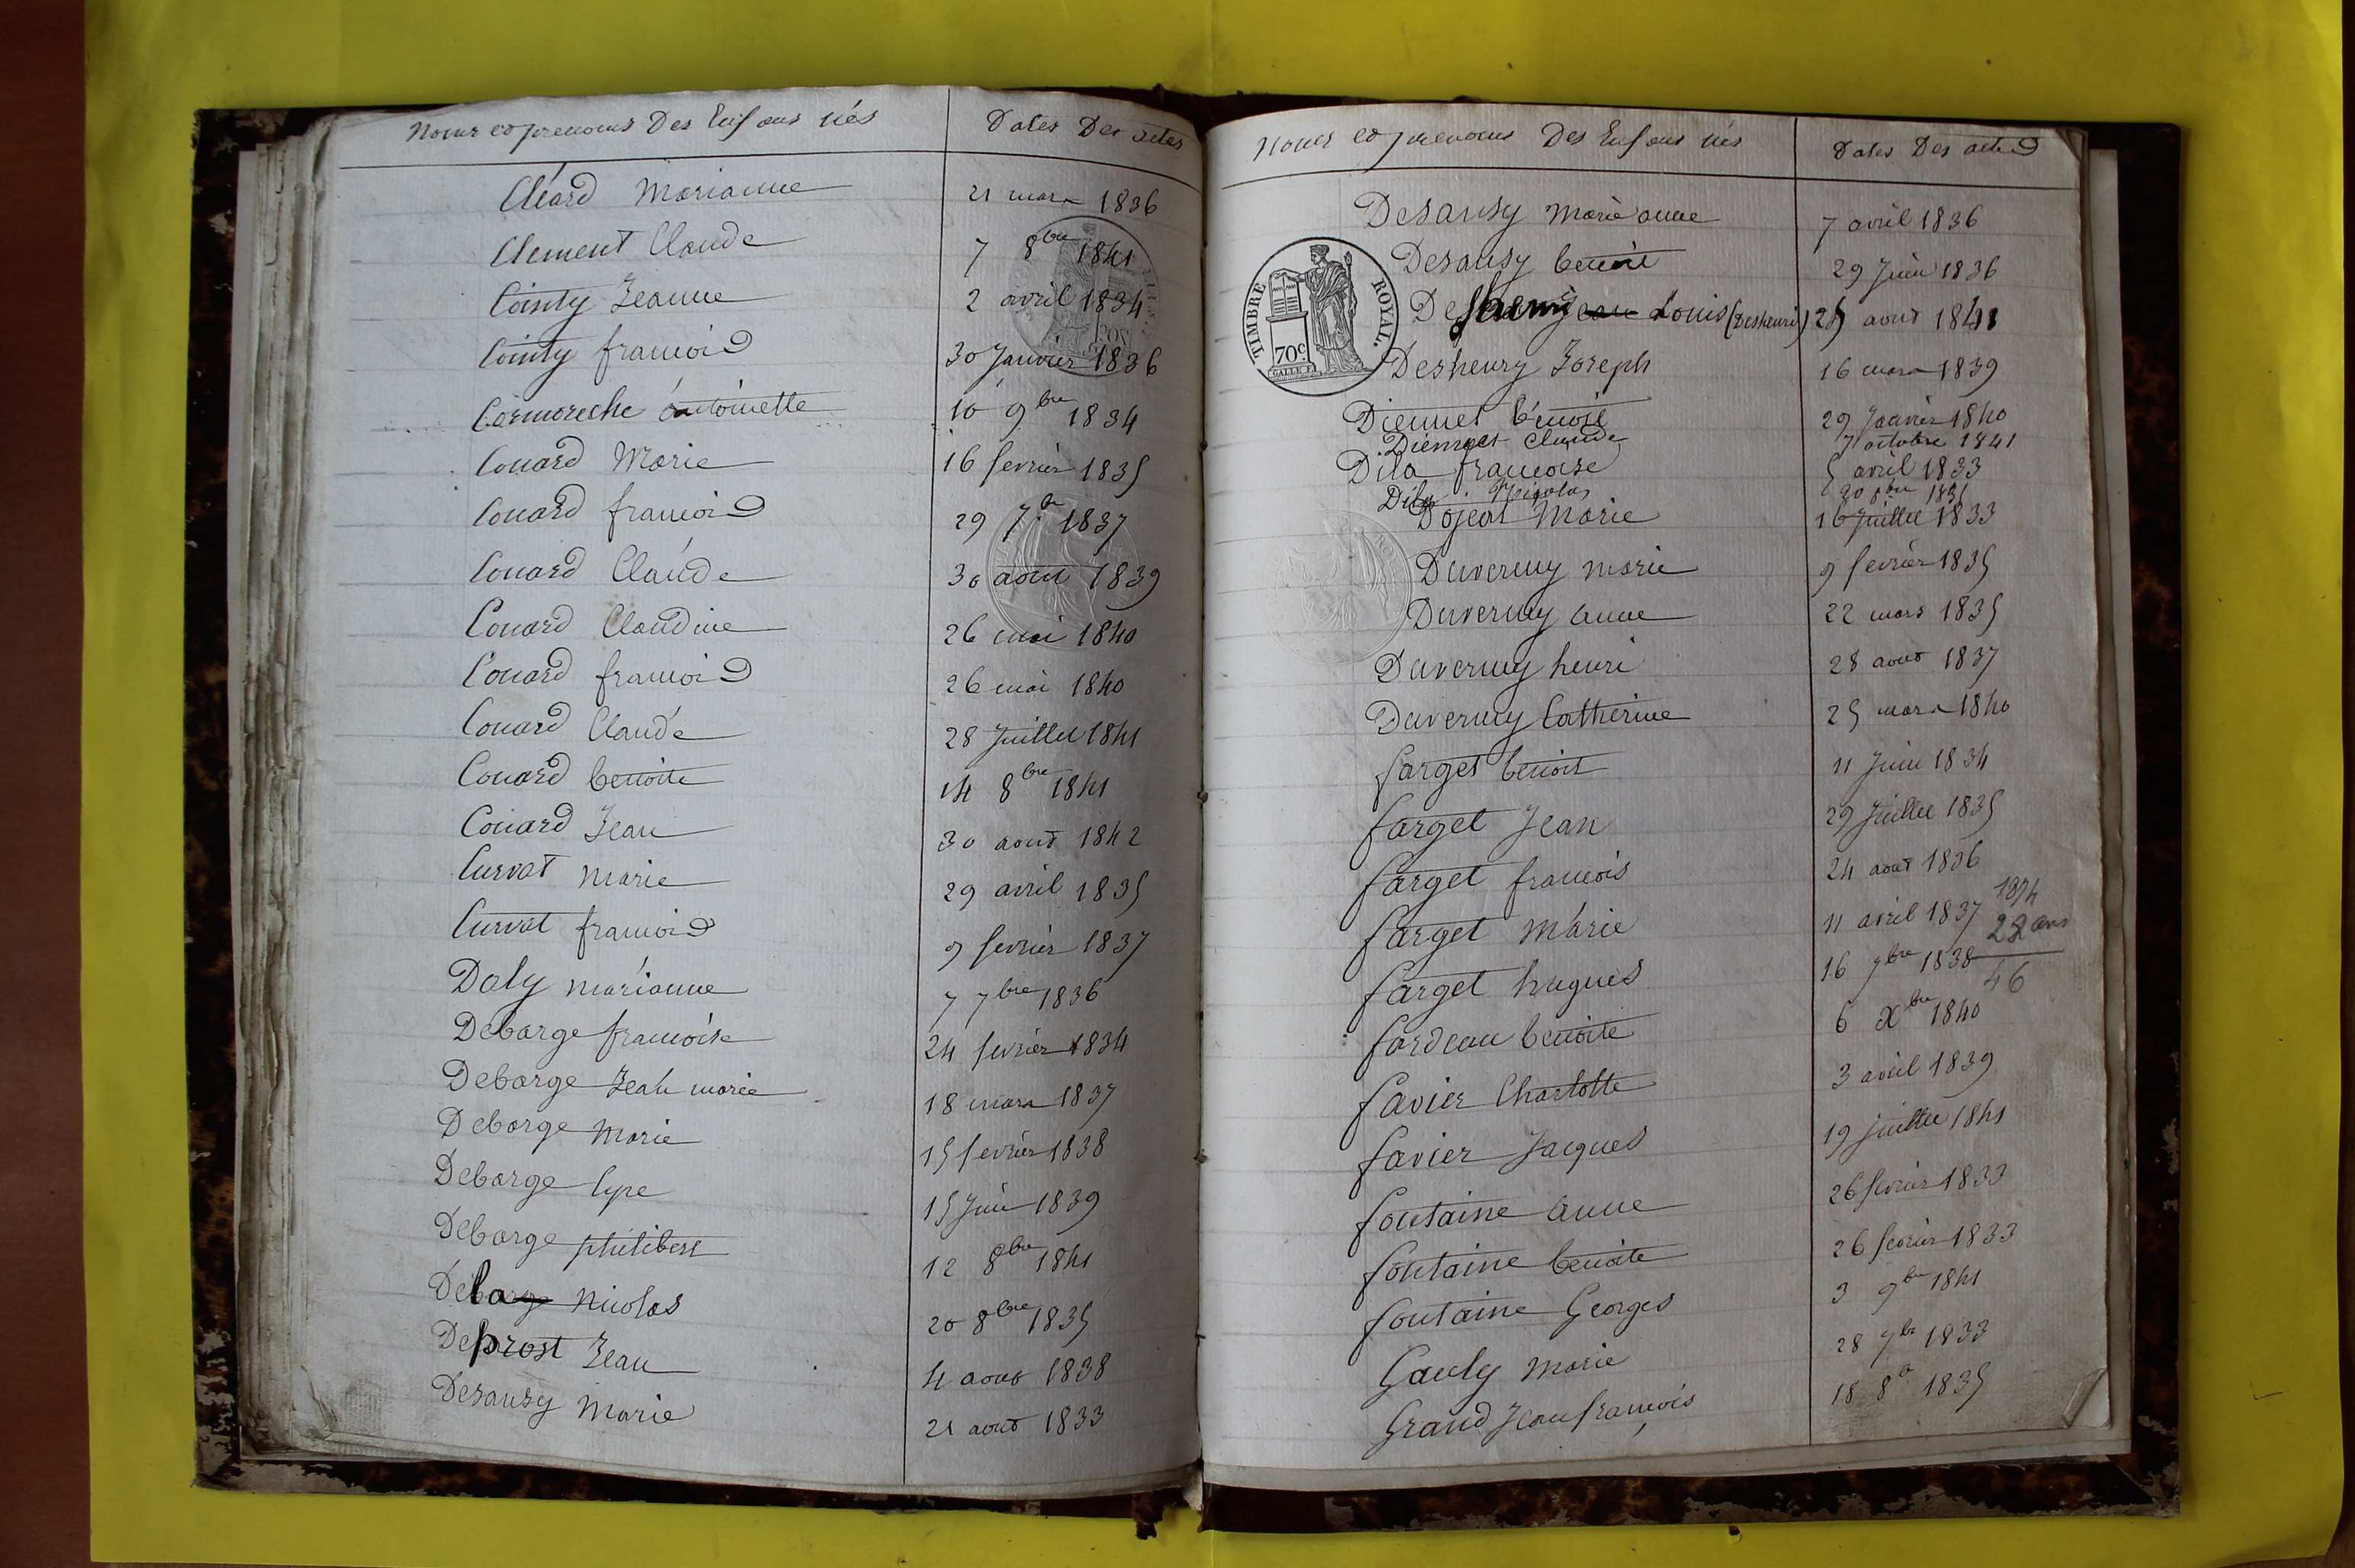 Noms et prenoms Des Enfans nés Dates Des actes
Cléard Marianne 21 mars 1836
Clement Claude 7 8bre 1841
Cointy Jeanne 2 avril 1834
Cointy francois 30 Janvier 1836
Cormoreche antoinette 10 9bre 1834
Couard Marie 16 fevrier 1835
Couard francois 29 7bre 1837
Couard Claude 30 aout 1839
Couard Claudine 26 mai 1840
Couard francois 26 mai 1840
Couard Claude 28 Juillet 1841
Couard benoite 14 8bre 1841
Couard Jean 30 aout 1842
Curvat Marie 29 avril 1835
Curvat francois 9 fevrier 1837
Daly marianne 7 7bre 1836
Debarge francoise 24 fevrier 1834
Debarge Jean marie 18 mars 1837
Debarge Marie 15 fevrier 1838
Debarge 15 Juin 1839
Debarge philibert 12 8bre 1841
Nicolas 20 8bre 1835
Deprost Jean 4 aout 1838
Desausy Marie 21 aout 1833
Noms et prenoms Des Enfans nés Dates Des actes
Desausy Marie anne 7 avril 1836
Desausy benoit 29 Juin 1836
Louis (Desheuri) 25 aout 1841
TIMBRE ROYAL.
70c.
Desheury Joseph 16 mars 1839
Diennet benoit 29 Janvier 1840
Diennet Claude 7 octobre 1841
Dila francoise 5 avril 1833
Dila Nicolas 20 8bre 1835
Dojeat Marie 16 Juillet 1833
Duvernay marie 9 fevrier 1835
Duvernay anne 22 mars 1835
Duvernay henri 28 aout 1837
Duvernay Catherine 25 mars 1840
farget benoit 11 Juin 1834
farget Jean 29 Juillet 1835
farget francois 24 aout 1836
farget Marie 11 avril 1837
farget hugues 16 7bre 1838
1874
28 ans
46
fardeau benoite 6 Xbre 1840
favier Charlotte 3 avril 1839
favier Jacques 19 juillet 1841
fontaine anne 26 fevrier 1833
fontaine benoite 26 fevrier 1833
fontaine Georges 3 9bre 1841
Gauly Marie 28 7bre 1833
Grand Jean francois 18 8bre 1835